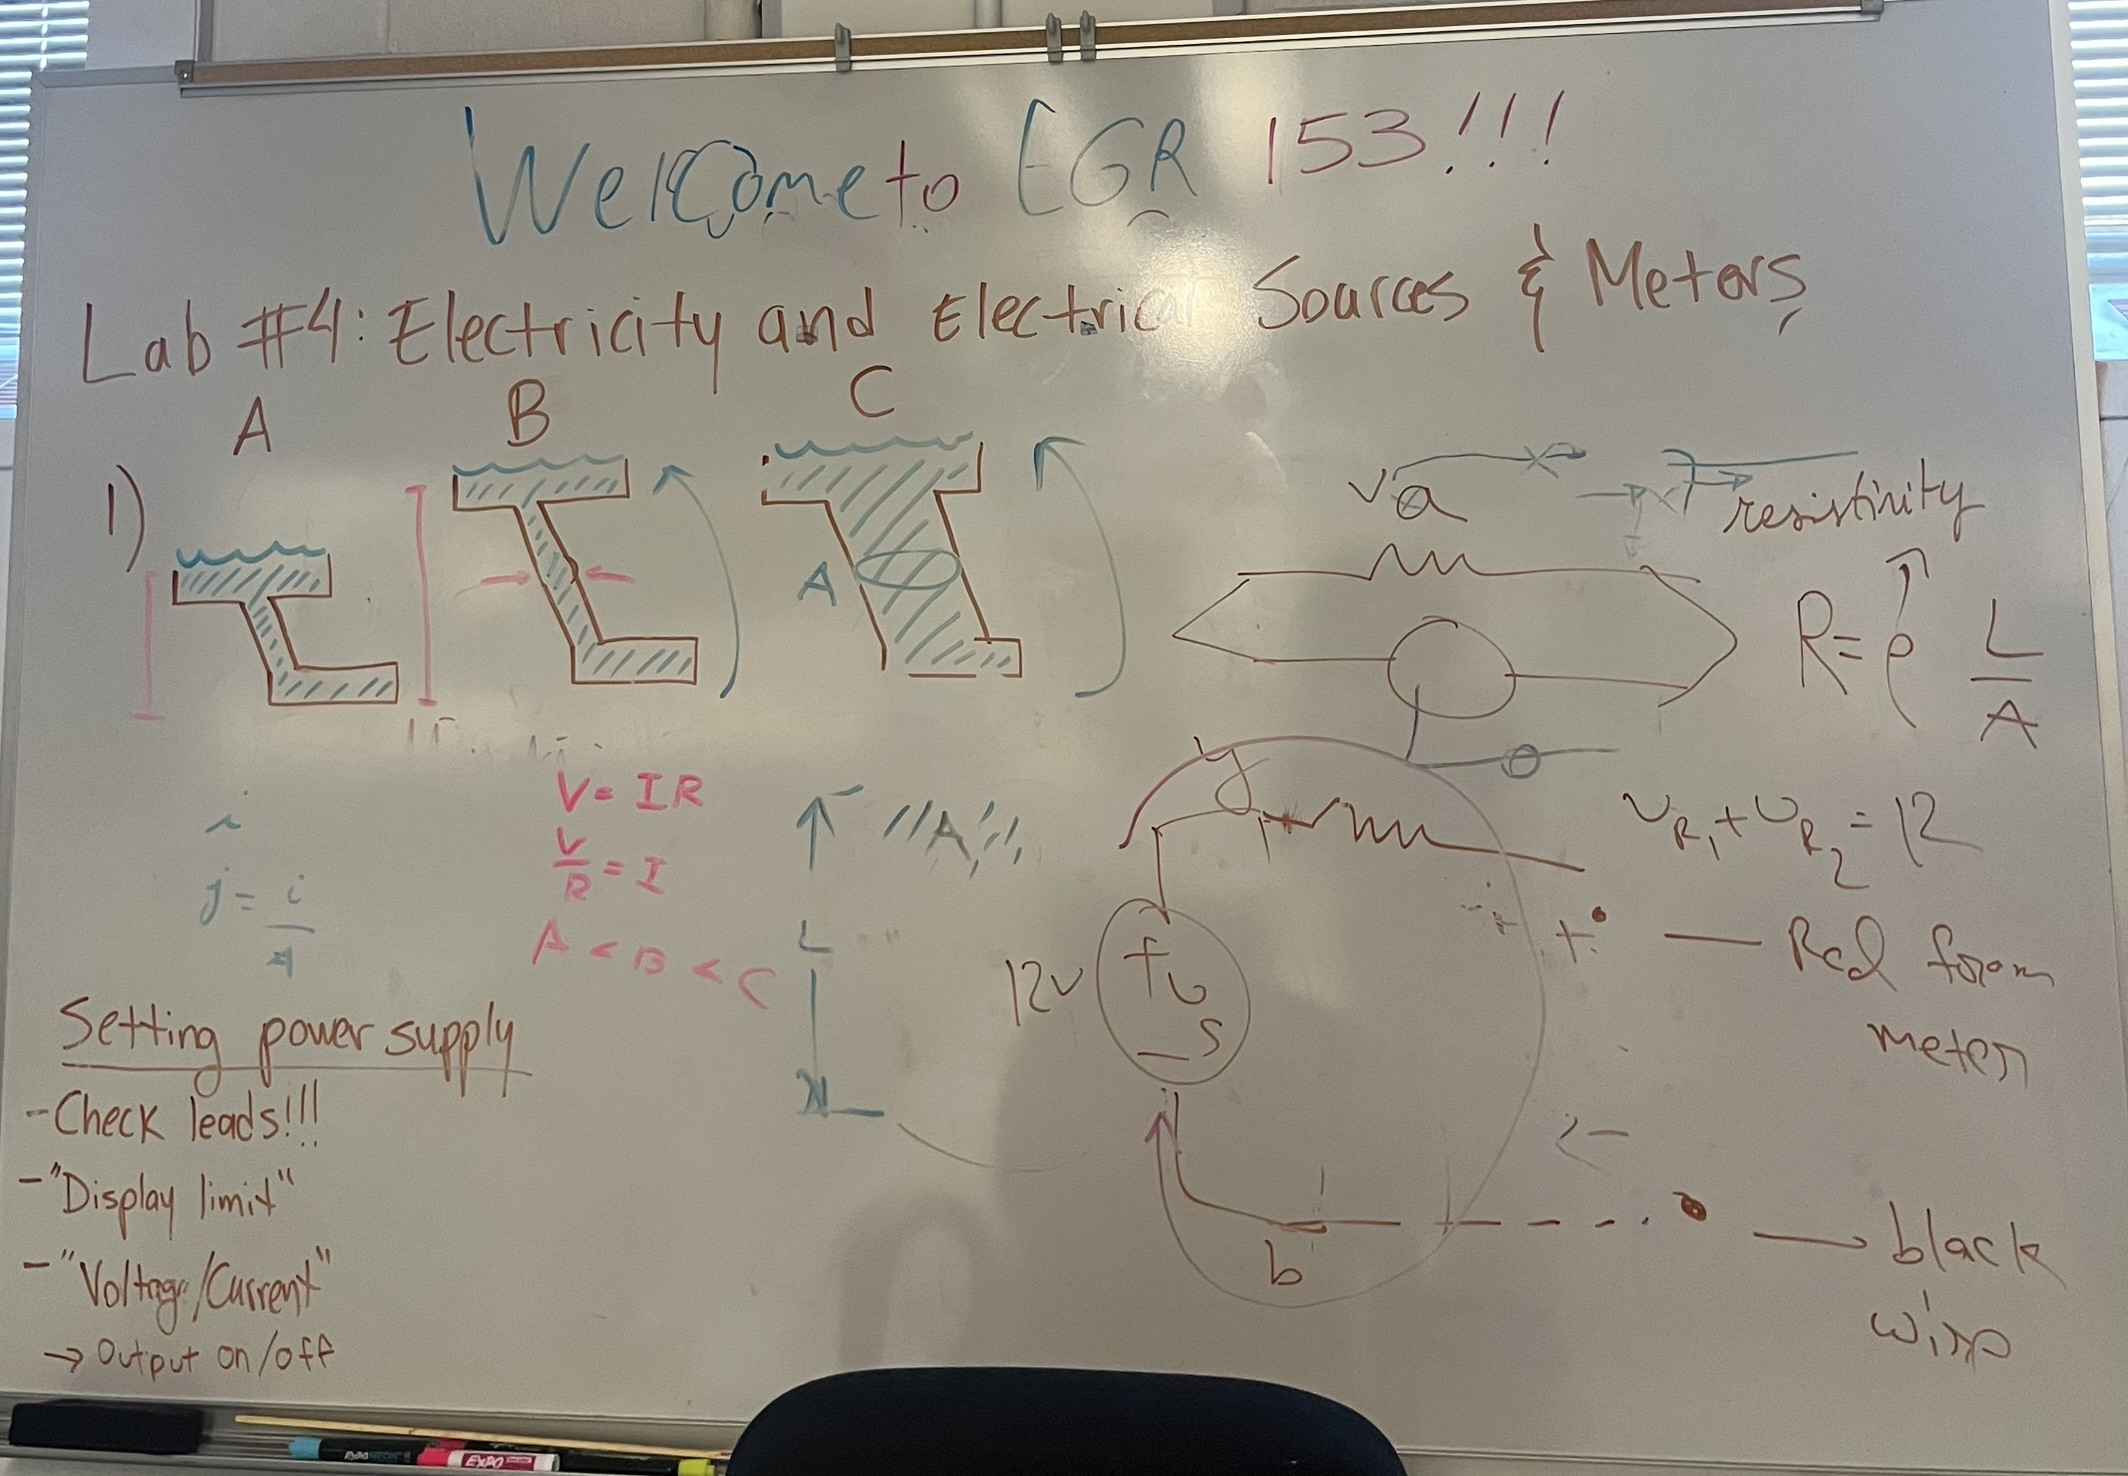 Welcome to EGR 153!!!
Lab #4: Electricity and Electrical Sources & Meters
A
B
C
1)
A
va
resistivity
R = ρ L/A
i
j = i/A
V = IR
V/R = I
A < B < C
"A"
L
υR1 + υR2 = 12
12v
+
υs
−
+
Red from
meter
b
black
wire
Setting power supply
- Check leads!!!
- "Display limit"
- "Voltage/Current"
→ Output on/off
EXPO
EXPO